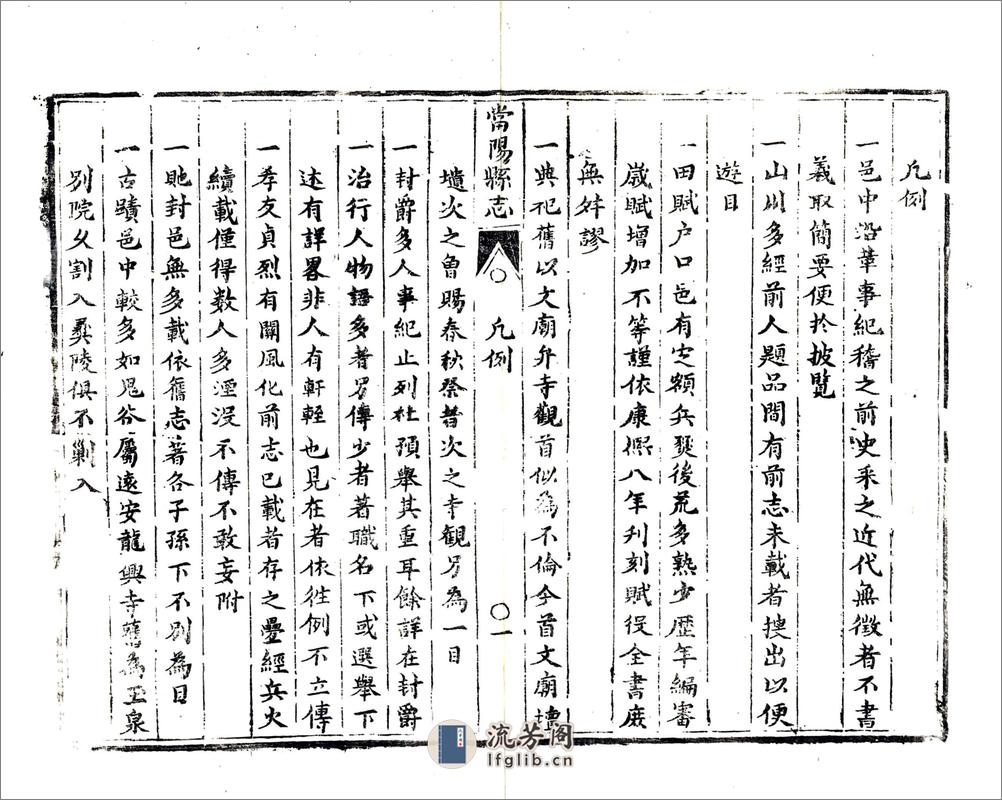 凡例
一邑中沿革事紀稽之前史采之近代無徵者不書
義取簡要便扵披覽
一山川多經前人題品間有前志未載者摉出以便
遊目
一田賦户口邑有定額兵燹後荒多熟少歴年編審
歲賦增加不等謹依康熈八年刋刻賦役全書庻
無舛謬
一典祀舊以文廟弁寺觀首似為不倫今首文廟壇
當陽縣志 凡例 一
墠次之魯賜春秋祭者次之寺觀另為一目
一封爵多人事紀止列杜預舉其重耳餘詳在封爵
一治行人物語多者另傳少者著職名下或選舉下
述有詳畧非人有軒輊也見在者依徃例不立傳
一孝友貞烈有關風化前志已載者存之疊經兵火
續載僅得数人多湮没不傳不敢妄附
一貤封邑無多載依舊志著各子孫下不别為目
一古蹟邑中較多如鬼谷屬遠安龍興寺舊為玉泉
别院乂割入彛陵俱不剿入
流芳阁
lfglib.cn